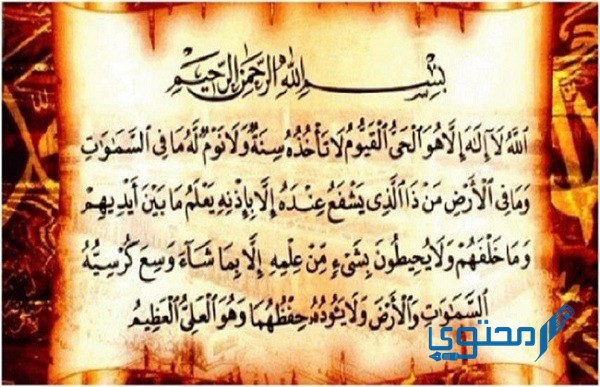 بِسْمِ اللَّهِ الرَّحْمَٰنِ الرَّحِيمِ
اللَّهُ لَا إِلَٰهَ إِلَّا هُوَ الْحَيُّ الْقَيُّومُ لَا تَأْخُذُهُ سِنَةٌ وَلَا نَوْمٌ لَّهُ مَا فِي السَّمَاوَاتِ
وَمَا فِي الْأَرْضِ مَن ذَا الَّذِي يَشْفَعُ عِندَهُ إِلَّا بِإِذْنِهِ يَعْلَمُ مَا بَيْنَ أَيْدِيهِمْ
وَمَا خَلْفَهُمْ وَلَا يُحِيطُونَ بِشَيْءٍ مِّنْ عِلْمِهِ إِلَّا بِمَا شَاءَ وَسِعَ كُرْسِيُّهُ
السَّمَاوَاتِ وَالْأَرْضَ وَلَا يَئُودُهُ حِفْظُهُمَا وَهُوَ الْعَلِيُّ الْعَظِيمُ
محتوى